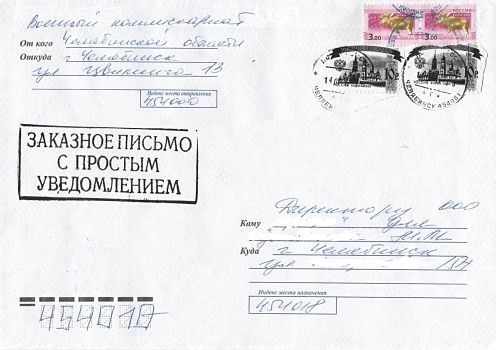 Военный комиссариат
От кого Челябинской области
Откуда г Челябинск
ул Цвиллинга 13
Индекс места отправления
454000
РОССИЯ
3.00 3.00
ЧЕЛЯБИНСК 4540
ЗАКАЗНОЕ ПИСЬМО
С ПРОСТЫМ
УВЕДОМЛЕНИЕМ
Директору ООО
Кому
Куда г Челябинск
Индекс места назначения
454018
454010